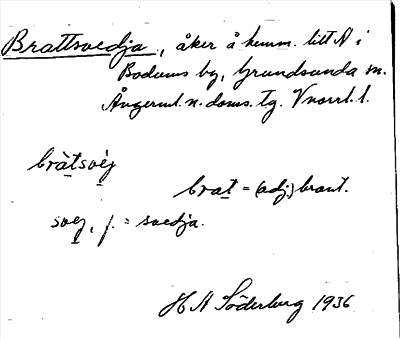 Brattsvedja, åker å hemm. litt A i
Bodums by, Grundsunda sn.
Ångerml. n. doms. tg. Vnorrl. l.
bràtsvèj
brat = (adj.) brant.
svej, f. = svedja.
H A Söderberg 1936